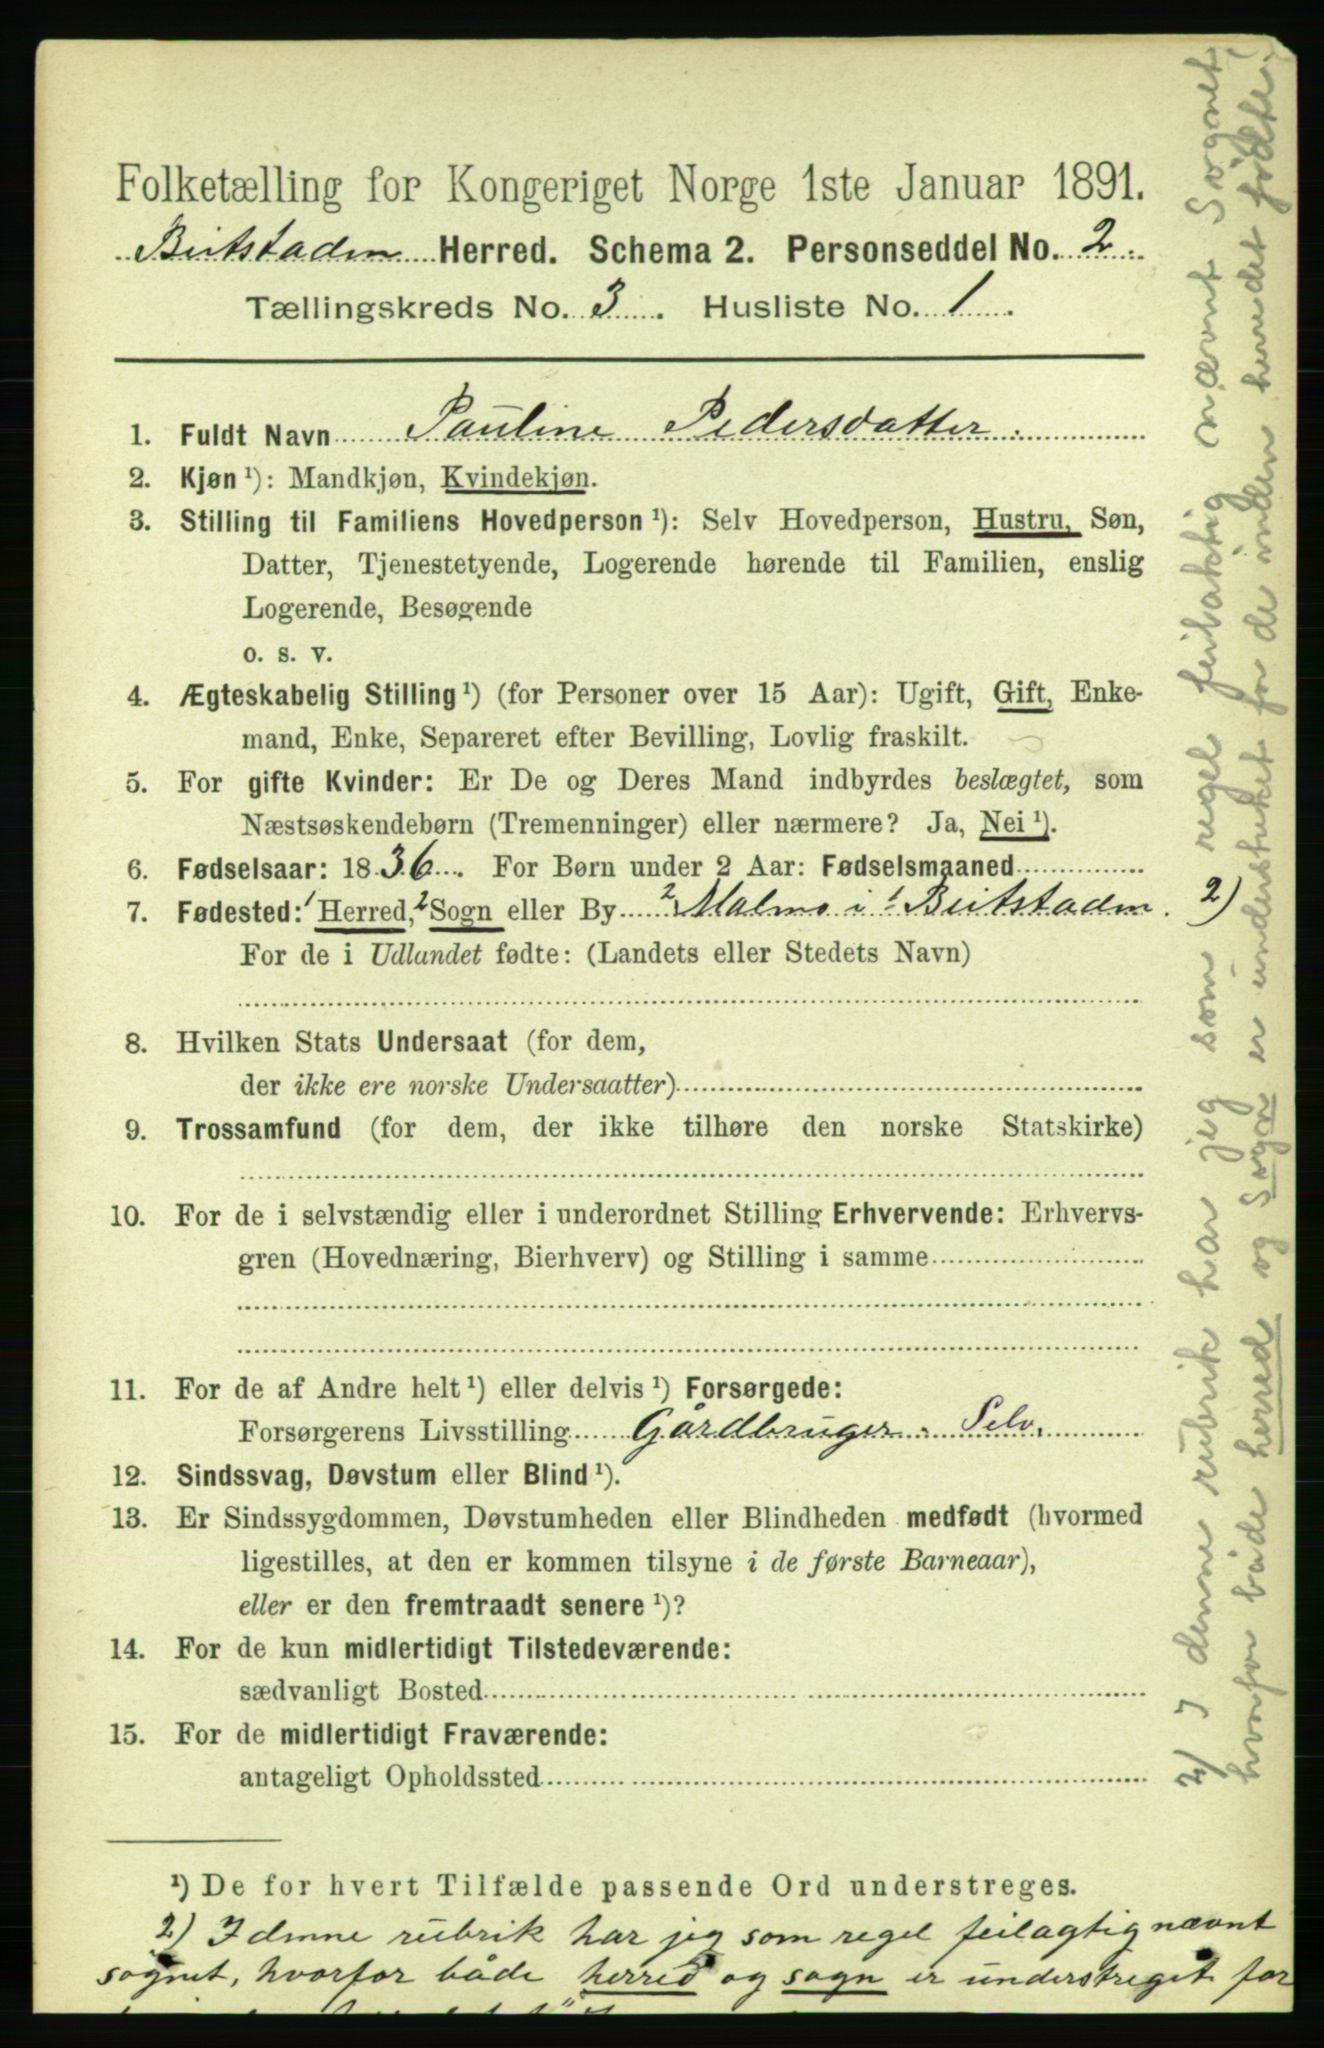 Folketælling for Kongeriget Norge 1ste Januar 1891.
Beitstaden Herred. Schema 2. Personseddel No. 2.
Tællingskreds No. 3. Husliste No. 1.
1. Fuldt Navn Pauline Pedersdatter.
2. Kjøn ¹): Mandkjøn, Kvindekjøn.
3. Stilling til Familiens Hovedperson ¹): Selv Hovedperson, Hustru, Søn,
Datter, Tjenestetyende, Logerende hørende til Familien, enslig
Logerende, Besøgende
o. s. v.
4. Ægteskabelig Stilling ¹) (for Personer over 15 Aar): Ugift, Gift, Enke-
mand, Enke, Separeret efter Bevilling, Lovlig fraskilt.
5. For gifte Kvinder: Er De og Deres Mand indbyrdes beslægtet, som
Næstsøskendebørn (Tremenninger) eller nærmere? Ja, Nei ¹).
6. Fødselsaar: 1836. For Børn under 2 Aar: Fødselsmaaned
7. Fødested: ¹Herred, ²Sogn eller By ²Malmo i ¹Beitstaden. 2)
For de i Udlandet fødte: (Landets eller Stedets Navn)
8. Hvilken Stats Undersaat (for dem,
der ikke ere norske Undersaatter)
9. Trossamfund (for dem, der ikke tilhøre den norske Statskirke)
10. For de i selvstændig eller i underordnet Stilling Erhvervende: Erhvervs-
gren (Hovednæring, Bierhverv) og Stilling i samme
11. For de af Andre helt ¹) eller delvis ¹) Forsørgede:
Forsørgerens Livsstilling Gårdbruger. Selv.
12. Sindssvag, Døvstum eller Blind ¹).
13. Er Sindssygdommen, Døvstumheden eller Blindheden medfødt (hvormed
ligestilles, at den er kommen tilsyne i de første Barneaar),
eller er den fremtraadt senere ¹)?
14. For de kun midlertidigt Tilstedeværende:
sædvanligt Bosted
15. For de midlertidigt Fraværende:
antageligt Opholdssted
¹) De for hvert Tilfælde passende Ord understreges.
2) I denne rubrik har jeg som regel feilagtig nævnt
sognet, hvorfor både herred og sogn er understreget for
2) I denne rubrik har jeg som regel feilaktig nævnt Sognet,
hvorfor både herred og Sogn er understreket for de inden herredet fødte.